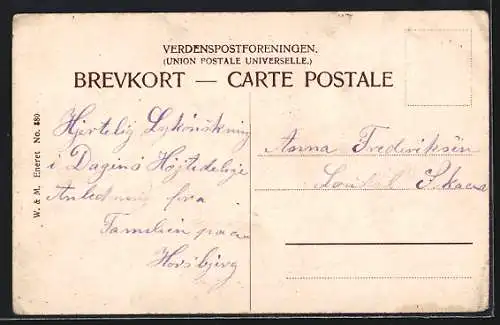 VERDENSPOSTFORENINGEN.
(UNION POSTALE UNIVERSELLE.)
BREVKORT — CARTE POSTALE
W. & M. Eneret No. 480
Hjertelig Lykönskning
i Dagens Höjtidelige
Anledning fra
Familien paa
Horsbjerg
Anna Frederiksen